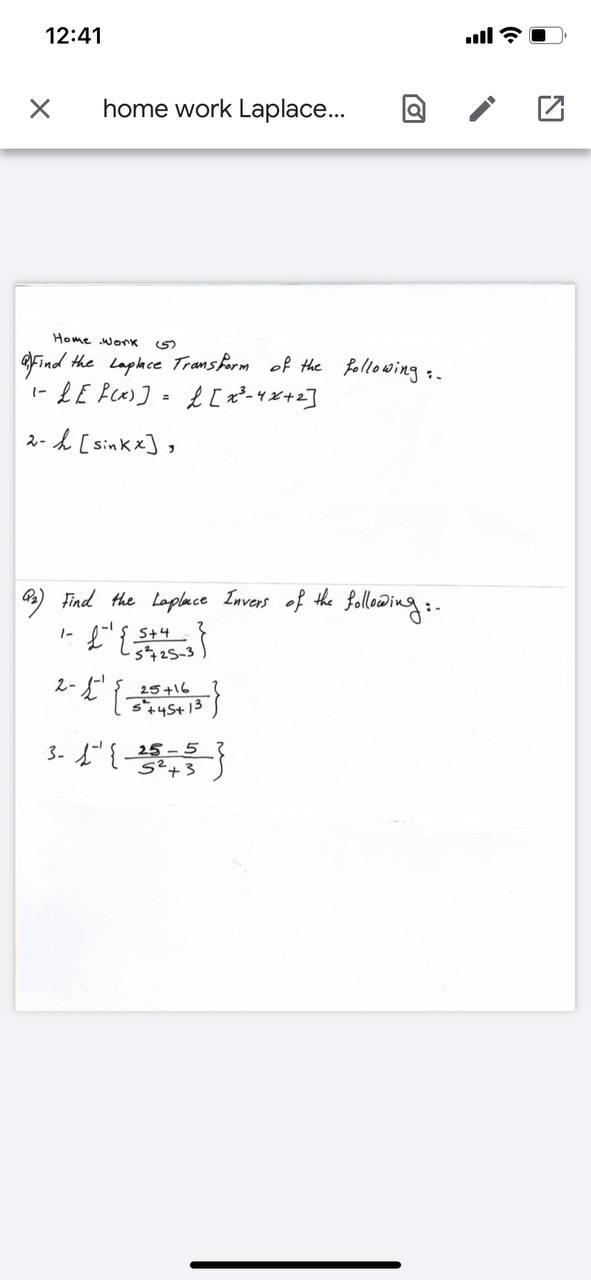 12:41
home work Laplace...
Home work (5)
Q1) Find the Laplace Transform of the following :-
1- ℒ[f(x)] = ℒ[x³-4x+2]
2- ℒ[sin kx] ,
Q2) Find the Laplace Invers of the following :-
1- ℒ⁻¹{ s+4 / s²+2s-3 }
2- ℒ⁻¹{ 2s+16 / s²+4s+13 }
3- ℒ⁻¹{ 2s-5 / s²+3 }